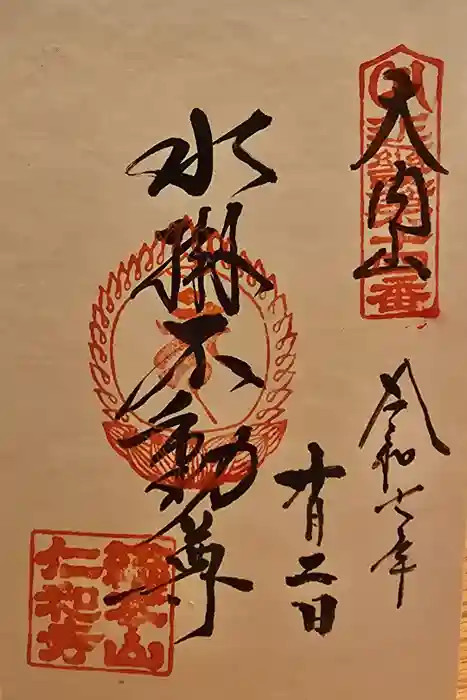 大内山
水掛不動尊
令和七年
十月二日
総本山
仁和寺